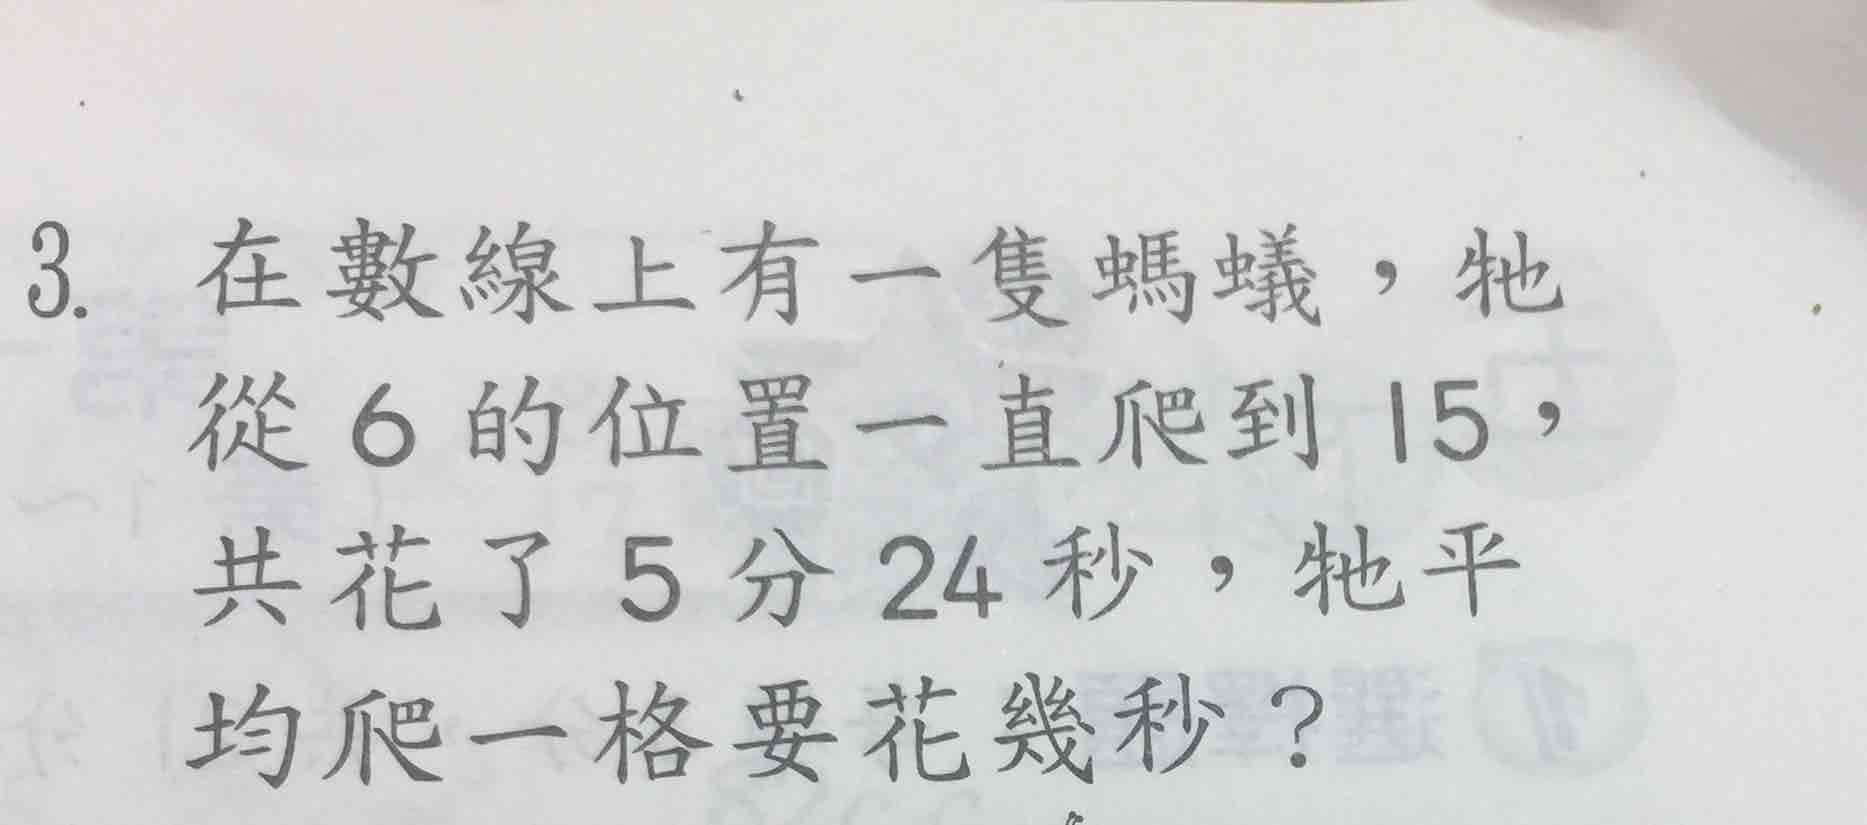 3. 在數線上有一隻螞蟻，牠
從6的位置一直爬到15，
共花了5分24秒，牠平
均爬一格要花幾秒？